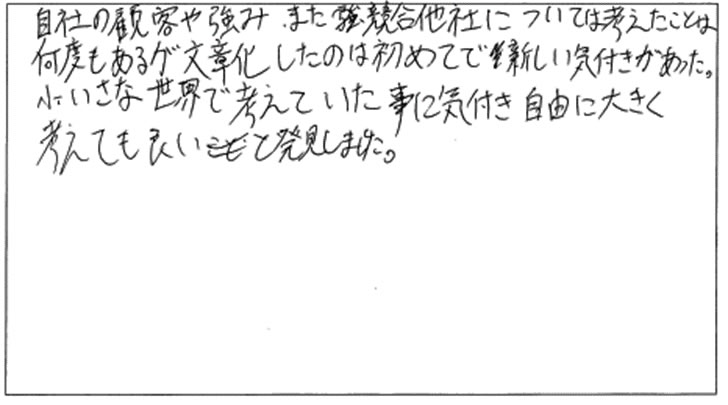 自社の顧客や強み、また競合他社については考えたことは
何度もあるが文章化したのは初めてで新しい気付きがあった。
小いさな世界で考えていた事に気付き自由に大きく
考えても良いと発見しました。